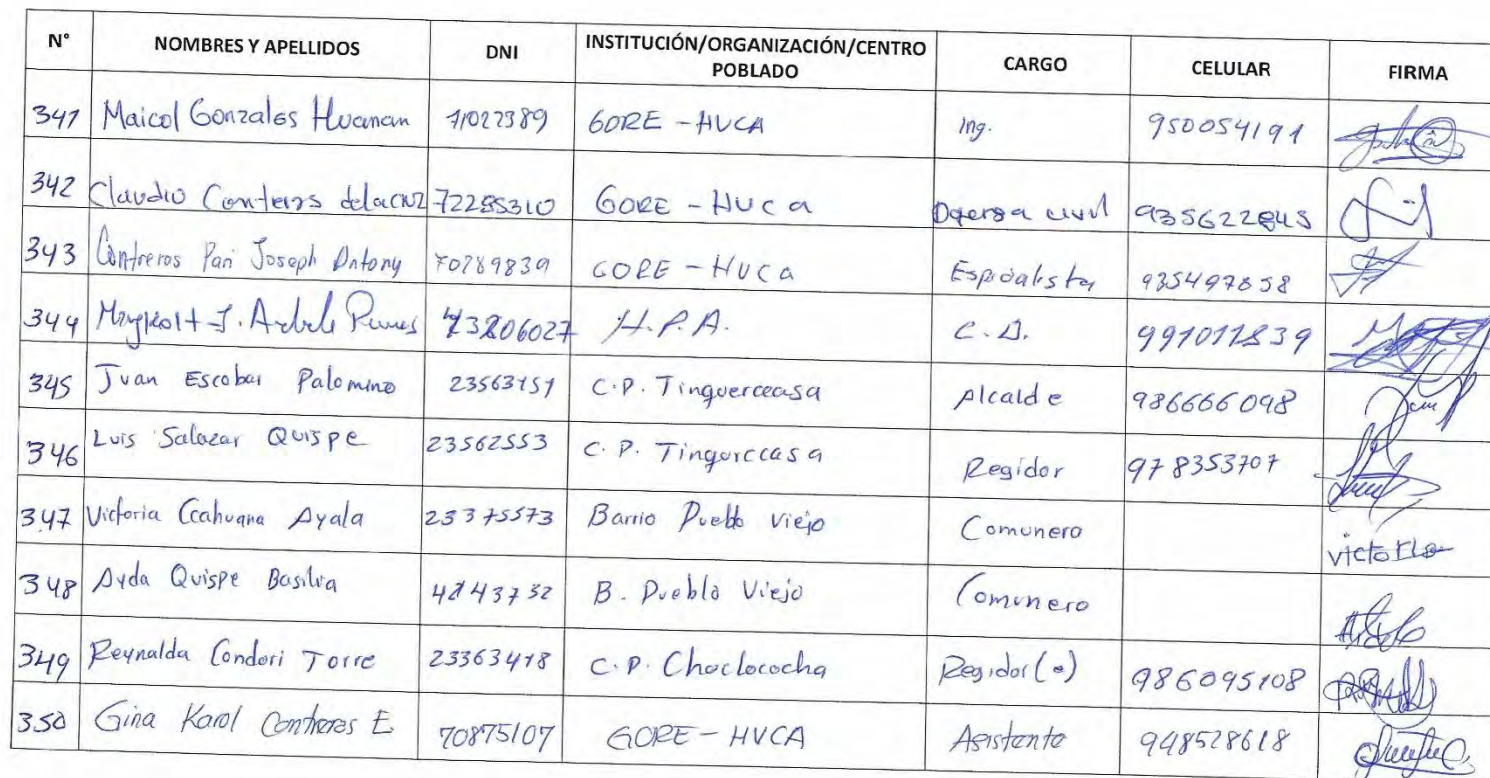 N° NOMBRES Y APELLIDOS DNI INSTITUCIÓN/ORGANIZACIÓN/CENTRO POBLADO CARGO CELULAR FIRMA
341 Maicol Gonzales Huaman 71027389 GORE - HVCA Ing. 950054191
342 Claudio Conteras delacruz 72285310 GORE - HUCa Defensa civil 935622845
343 Contreros Pari Joseph Antony 70289839 GORE - HUCa Espicialista 935497858
344 J. H.P.A. C.D. 991011839
345 Juan Escobar Palomino 23563151 C.P. Tinguerccasa Alcalde 986666098
346 Luis Salazar Quispe 23562553 C. P. Tingurccasa Regidor 978353707
347 Victoria Ccahuana Ayala 23375573 Barrio Pueblo viejo Comunero victoria
348 Ayda Quispe Basilia B. Pueblo Viejo Comunero
349 Reynalda Condori Torre 23363418 C.P. Choclococha Regidor(e) 986095108
350 Gina Karol Contreras E. 70875107 GORE - HVCA Asistente 948528618